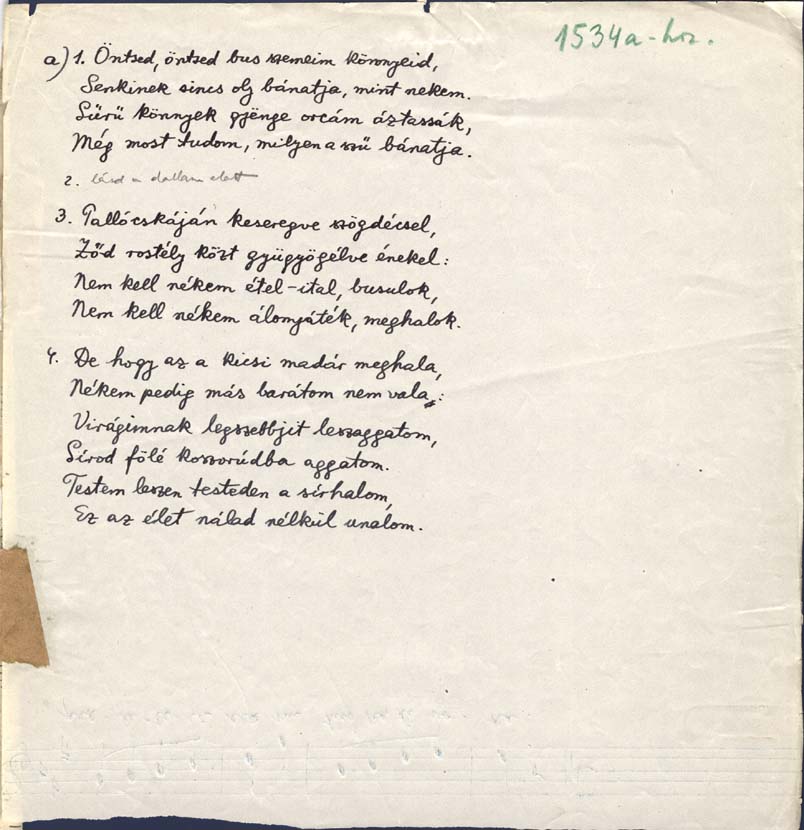 1534a-hoz.
a) 1. Öntsed, öntsed bus szemeim könnyeid,
Senkinek sincs oly bánatja, mint nekem.
Sürü könnyek gyenge orcám áztassák,
Még most tudom, milyen a szü bánatja.
2. lásd a dallam alatt
3. Pallócskáján keseregve szögdécsel,
Ződ rostély közt gyügyögélve énekel:
Nem kell nékem étel-ital, busulok,
Nem kell nékem álomjáték, meghalok.
4. De hogy az a kicsi madár meghala,
Nékem pedig más barátom nem vala:
Virágimnak legszebbjit leszaggatom,
Sírod fölé koszorúdba aggatom.
Testem leszen testeden a sírhalom,
Ez az élet nálad nélkül unalom.